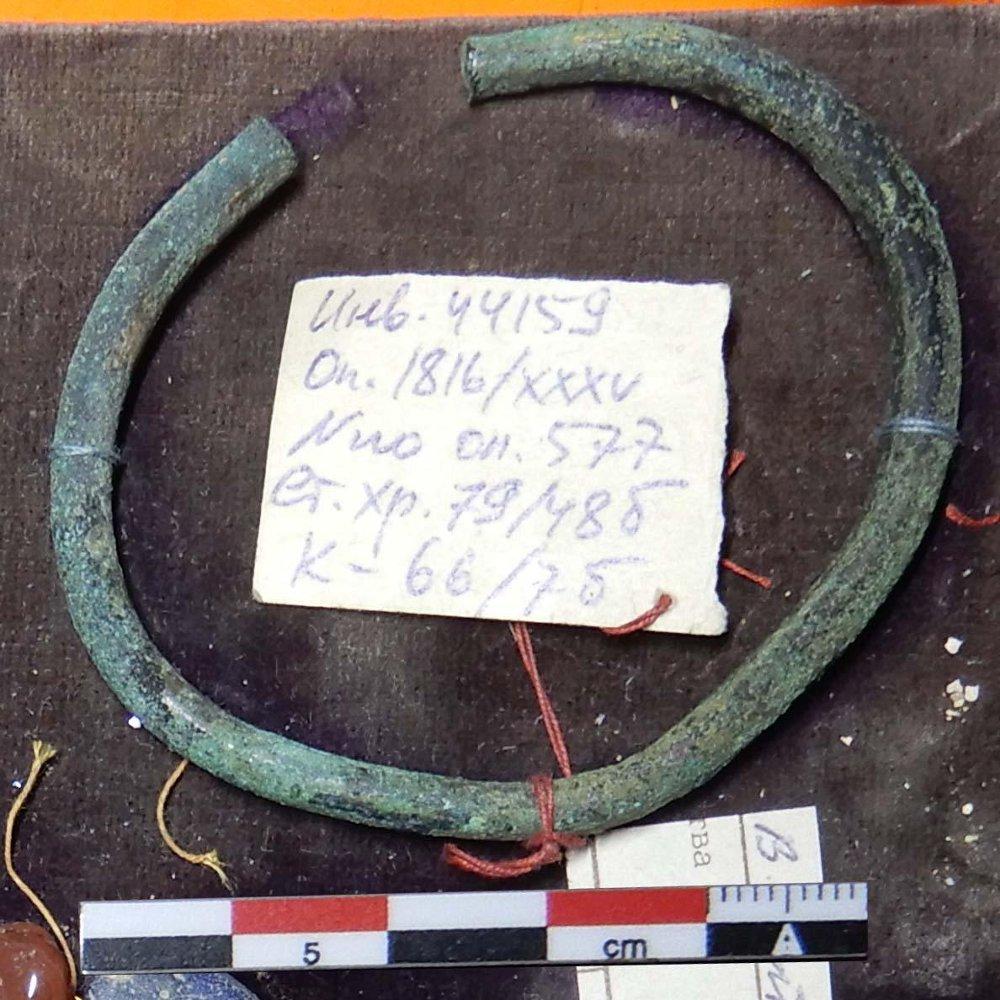 Инв. 44159
Оп. 1816/xxxv
№ по оп. 577
Ст. хр. 79/48б
К - 66/7б
В.
тва
5 cm